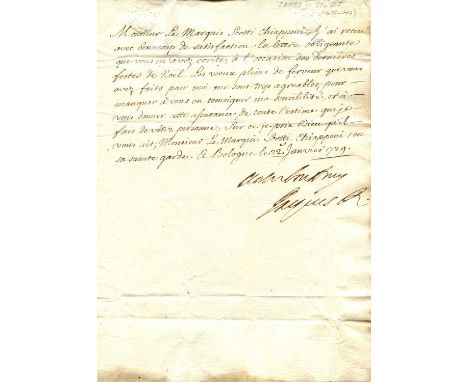 JAMES III STUART
Monsieur Le Marquis Scotti Chiapponi, J'ai receu
avec beaucoup de satisfaction la lettre obligeante
que vous m'avez ecrite, à l'occasion des dernières
festes de Noel. Les voeux pleins de ferveur que vous
avez faits pour moi me sont trop agreables, pour
manquer à vous en temoigner ma sensibilité, et à
vous donner cette assurance de toute l'estime que je
fais de vôtre personne. Sur ce je prie Dieu qu'il
vous ait, Monsieur Le Marquis Scotti Chiapponi en
sa sainte garde. A Bologne le 22 Janvier 1729.
Jacques R.